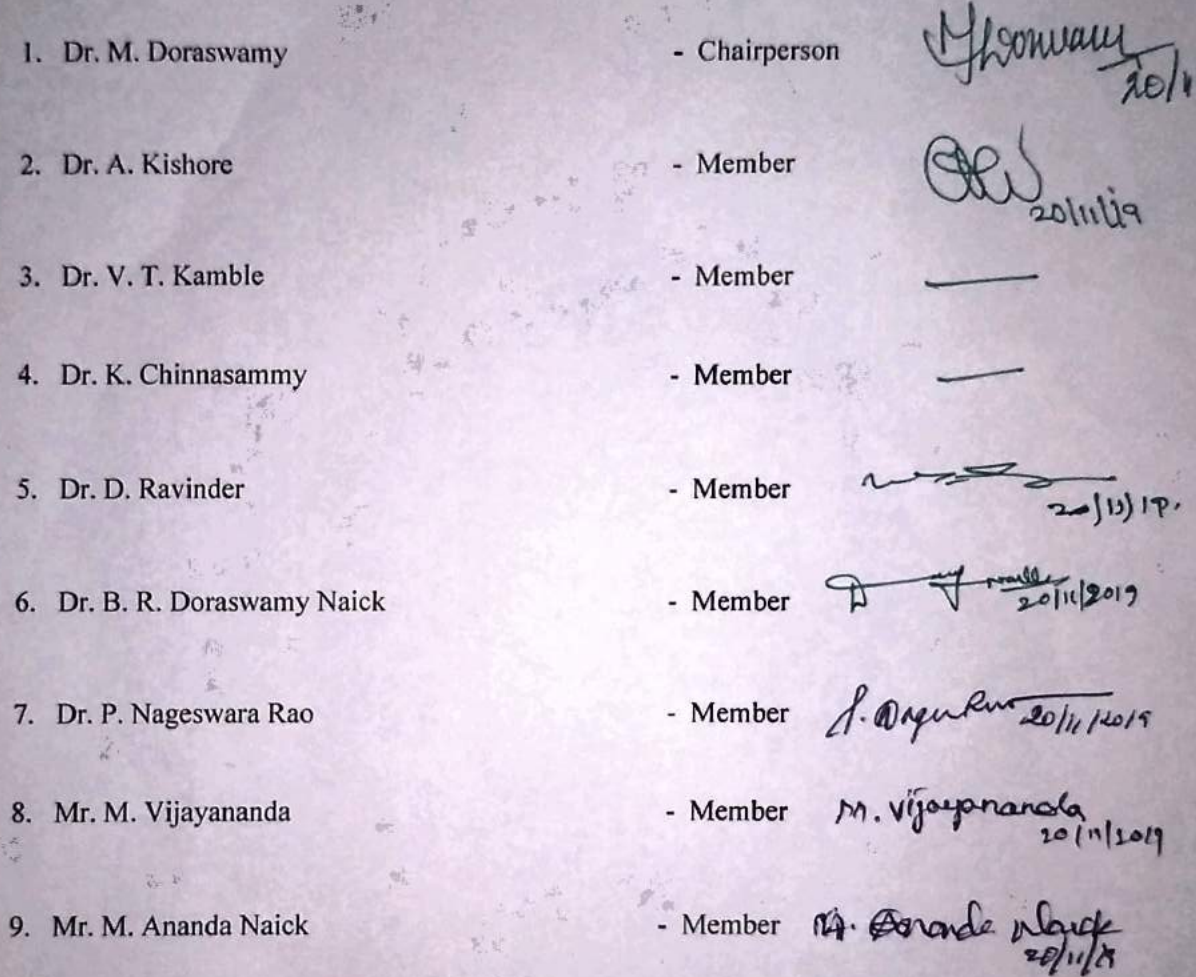 1. Dr. M. Doraswamy - Chairperson
20/1
2. Dr. A. Kishore - Member
20/11/19
3. Dr. V. T. Kamble - Member —
4. Dr. K. Chinnasammy - Member —
5. Dr. D. Ravinder - Member
20/11/19.
6. Dr. B. R. Doraswamy Naick - Member
20/11/2019
7. Dr. P. Nageswara Rao - Member 20/11/2019
8. Mr. M. Vijayananda - Member M. Vijayananda
20/11/2019
9. Mr. M. Ananda Naick - Member M. Ananda Naick
20/11/19